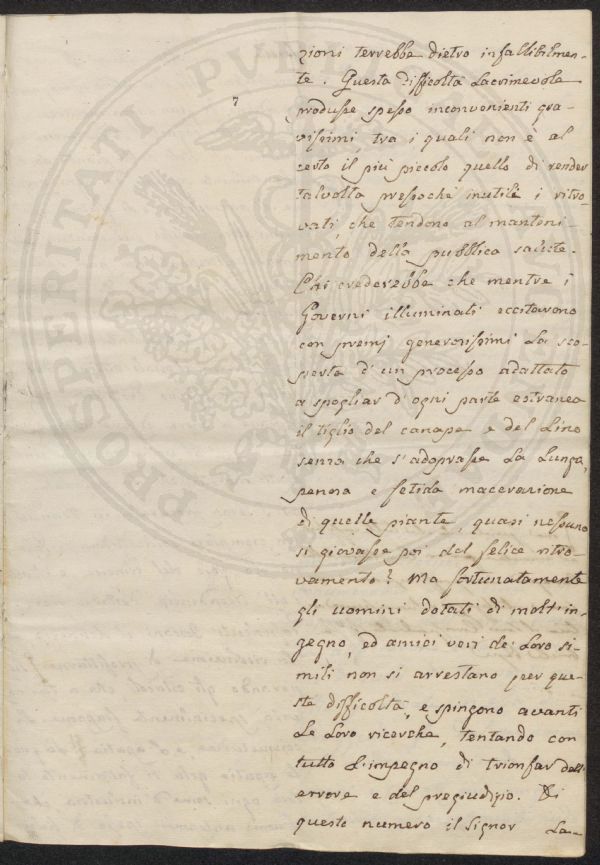 7
zioni terrebbe dietro infallibilmen-
te. Questa difficoltà lacrimevole
produsse spesso inconvenienti gra-
vissimi, tra i quali non è al
certo il più piccolo quello di render
talvolta pressochè inutili i ritro-
vati, che tendono al manteni-
mento della pubblica salute.
Chi crederebbe che mentre i
Governi illuminati eccitavono
con premj generosissimi la sco-
perta d'un processo adattato
a spogliar d'ogni parte estranea
il tiglio del canape e del Lino
senza che s'adoprasse la lunga,
penosa e fetida macerazione
di quelle piante, quasi nessuno
si giovasse poi del felice ritro-
vamento? Ma fortunatamente
gli uomini dotati di molt'in-
gegno, ed amici veri de' loro si-
mili non si arrestano per que-
ste difficoltà, e spingono avanti
le loro ricerche, tentando con
tutto l'impegno di trionfar dell'
errore e del pregiudizio. Di
questo numero il Signor La-
PROSPERITATI PUBL